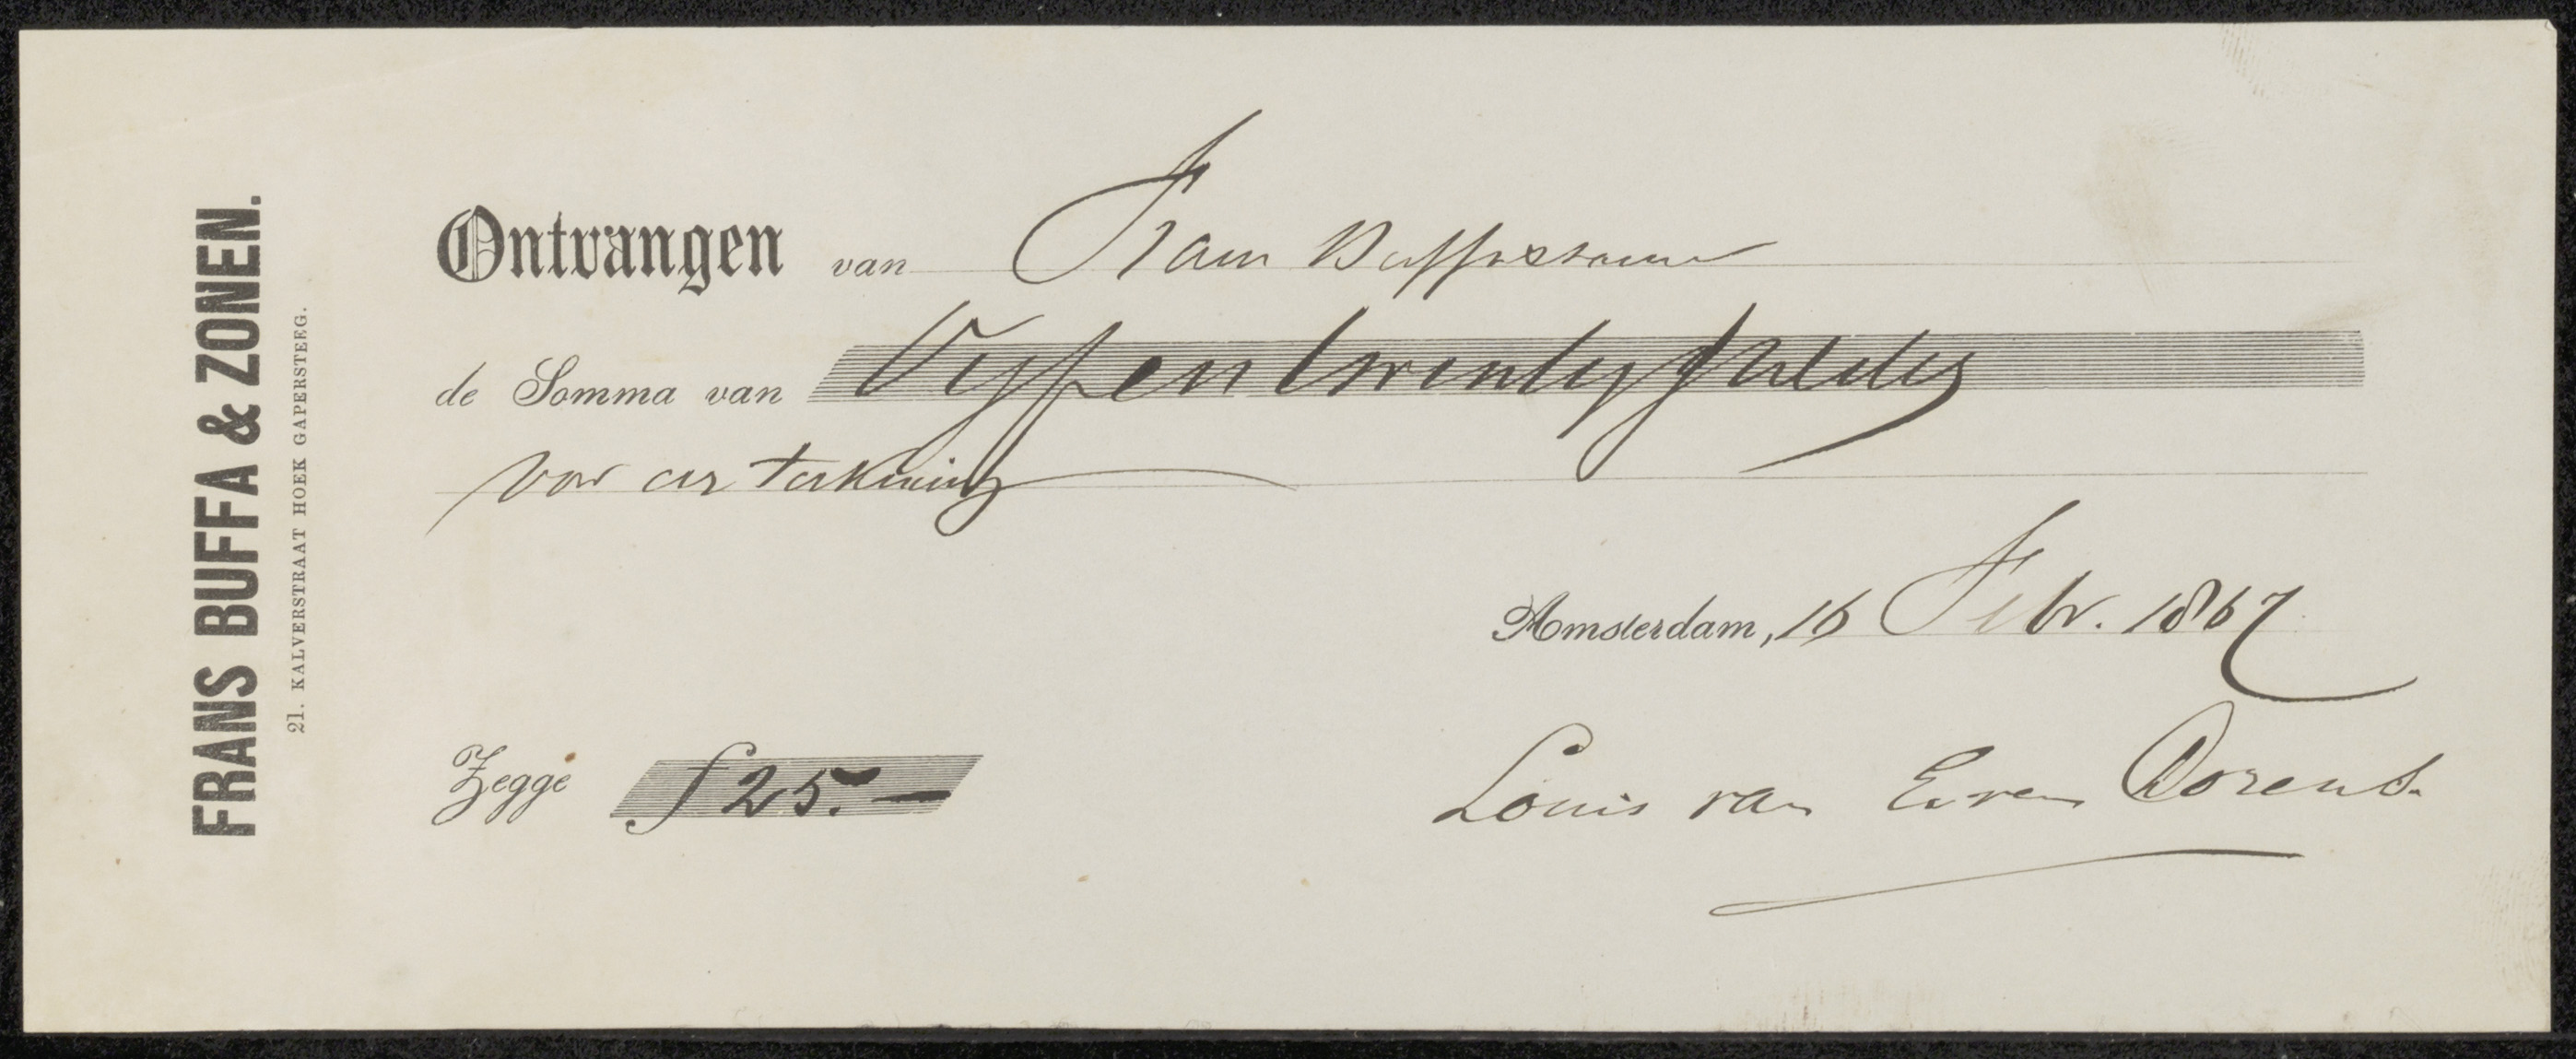 FRANS BUFFA & ZONEN.
21. KALVERSTRAAT HOEK GAPERSTEEG.
Ontvangen van Frans Buffa
de Somma van Vyfentwintig gulden
voor een tekening
Amsterdam, 16 Febr. 1867
Zegge f 25.—
Louis van